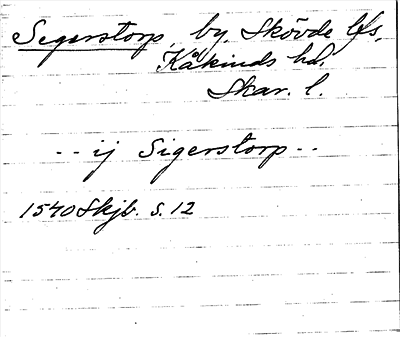 Segerstorp, by, Skövde lfs,
Kåkinds hd.
Skar. l.
-- ij Sigerstorp --
1540 Skjb. s. 12